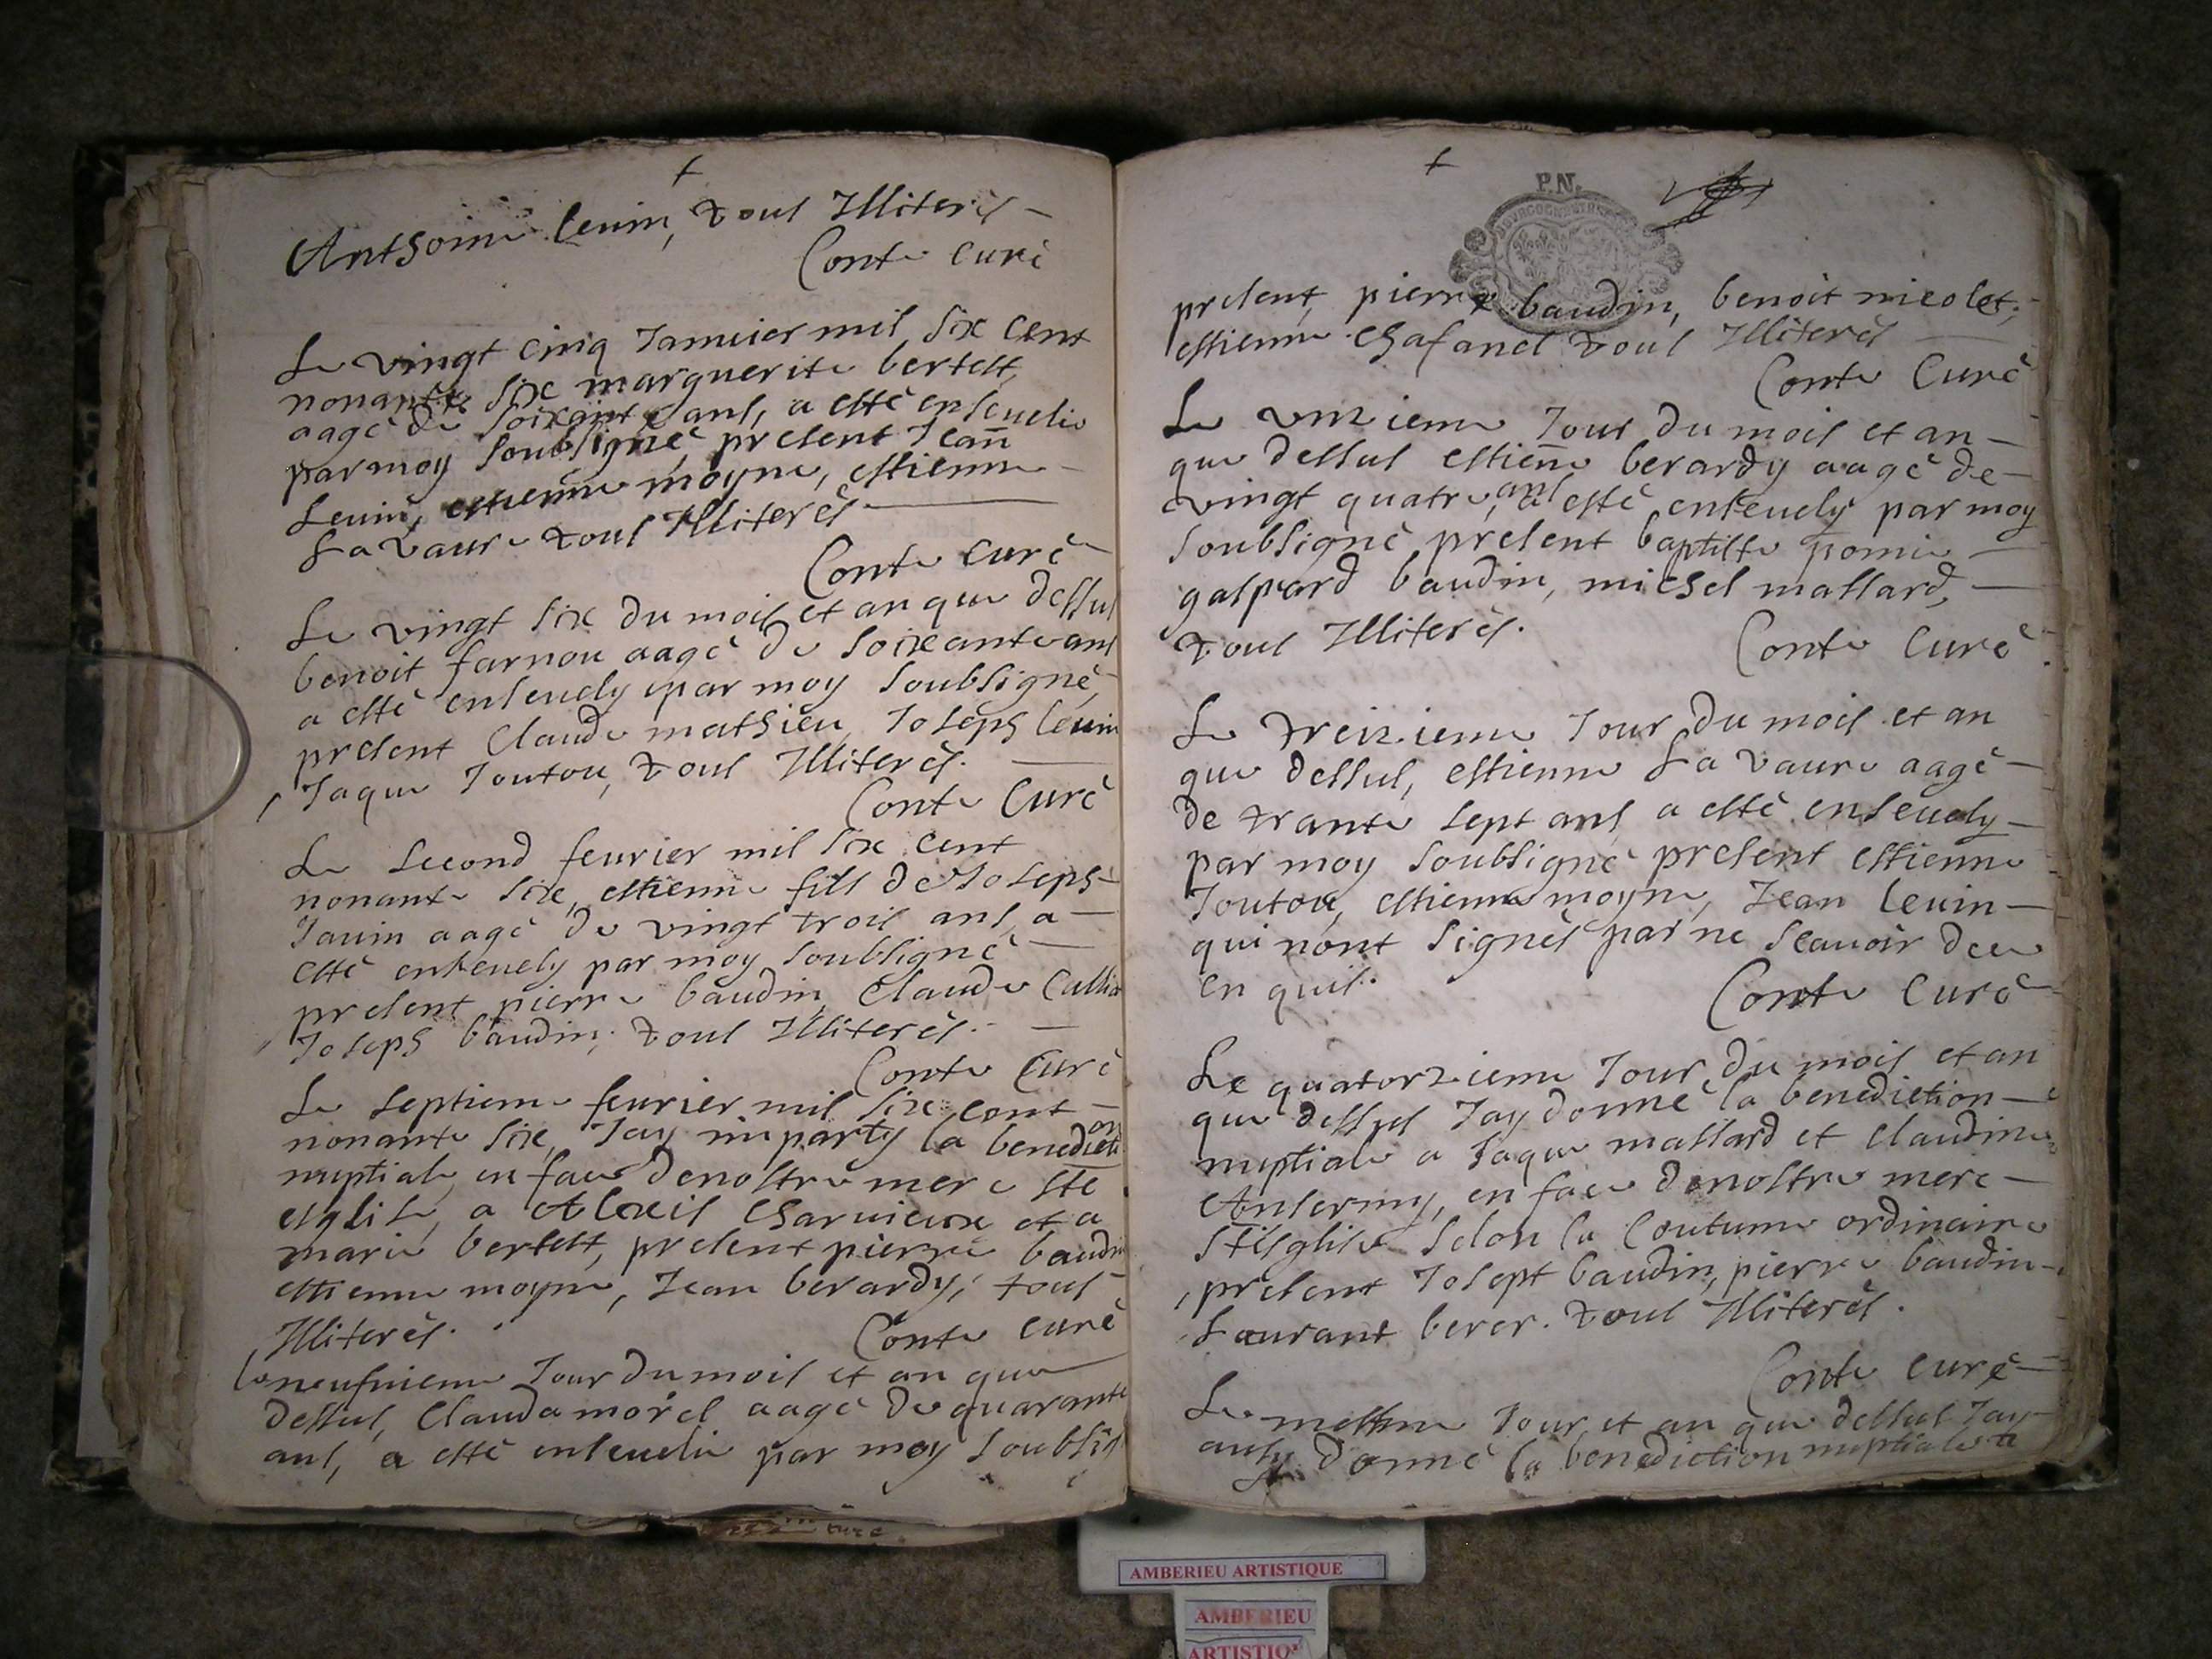 Anthoine levin, tous Illiterés
Conte Curé
Le vingt cinq Januier mil six cent
nonante six marguerite bertet,
aagé de soixante ans, a esté enseuelie
par moy soubsigné, present Jean
Leuin, estienne moyne, estienne
La vaure tous Illiterés
Conte Curé
Le vingt six du mois et an que dessus
benoit farnou aagé de soixante ans
a esté enseuely par moy soubsigné,
present Claude mathieu, Joseph leuin
Jaque Joutou, tous Illiterés.
Conte Curé
Le second feurier mil six cent
nonante six, estienne fils de Joseph
Jauin aagé de vingt trois ans, a
esté enseuely par moy soubsigné
present pierre baudin, Claude
Joseph baudin, tous Illiterés.
Conte Curé
Le septieme feurier mil six cent
nonante six, Jay imparty la benediction
nuptiale en face de nostre mere ste
esglise, a Alexis Charuieux et a
marie bertet, present pierre baudin
estienne moyne, Jean berardy, tous
Illiterés.
Conte Curé
le neufuieme Jour du mois et an que
dessus, Clauda morel aagé de quarante
ans, a esté enseuelie par moy soubsig
P.N.
present, pierre baudin, benoit nicolet,
estienne Chafanel tous Illiterés
Conte Curé
Le vnzieme Jour du mois et an
que dessus estienne berardy aagé de
vingt quatre, ans a esté enseuely par moy
soubsigné present baptiste pomie
gaspard baudin, michel mallard,
tous Illiterés.
Conte Curé
Le treizieme Jour du mois et an
que dessus, estienne La vaure aagé
de trante sept ans a esté enseuely
par moy soubsigné present estienne
Joutou, estienne moyne, Jean leuin
qui nont signés par ne scauoir de ce
en quis.
Conte Curé
Le quatorzieme Jour du mois et an
que dessus Jay donné la benediction
nuptiale a Jaque mallard et claudine
Ansermy, en face de nostre mere
st esglise selon la Coutume ordinaire
present Josept baudin, pierre baudin
Laurant berer. tous Illiterés.
Conte Curé
Le mesme Jour et an que dessus Jay
aussy donné la benediction nuptiale a
AMBERIEU ARTISTIQUE
AMBERIEU
ARTISTIQ